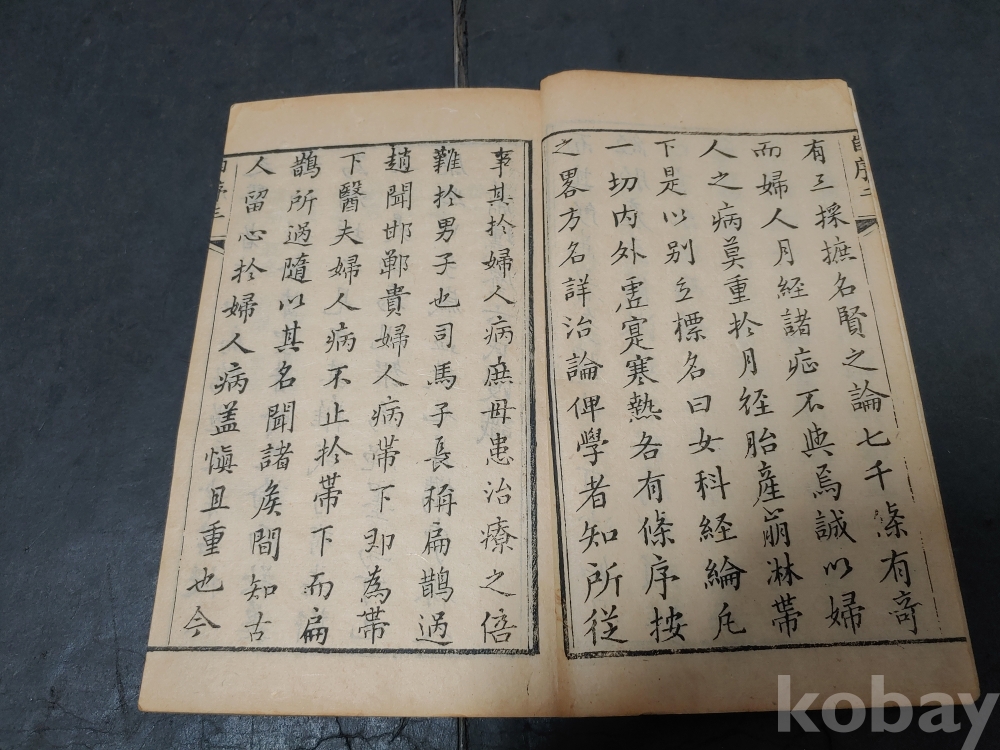 自序二
有三採摭名賢之論七千條有竒
而婦人月經諸症不與焉誠以婦
人之病莫重於月經胎產崩淋帶
下是以别立標名曰女科經綸凡
一切内外虛寔寒熱各有條序按
之畧方名詳治論俾學者知所從
事其於婦人病庶毋患治療之倍
難於男子也司馬子長稱扁鵲過
趙聞邯鄲貴婦人病帶下即為帶
下醫夫婦人病不止於帶下而扁
鵲所過隨以其名聞諸矦間知古
人留心於婦人病盖愼且重也今
自序三
kobay